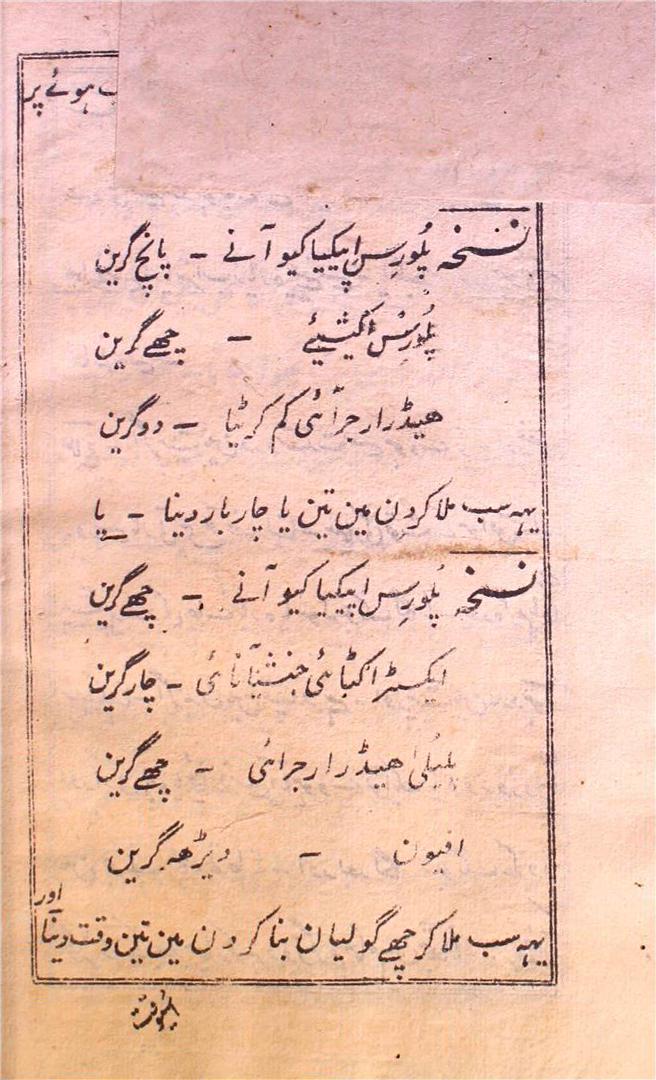 ب ہوئے پر
نسخہ پُلورِس اپیکیا کیو آنے - پانچ گرین
پُلورِس اکیشیئے - چھے گرین
ھیڈرارجرآئی کم کرٹیا - دو گرین
یہہ سب ملا کر دن مین تین یا چار بار دینا - یا
نسخہ پُلورِس اپیکیا کیو آنے - چھے گرین
ایکسٹراکٹائی جنشیآنائی - چار گرین
پلیُلی ھیڈرارجرائی - چھے گرین
افیون - دیڑھہ گرین
یہہ سب ملا کر چھے گولیان بنا کر دن مین تین وقت دینا اور